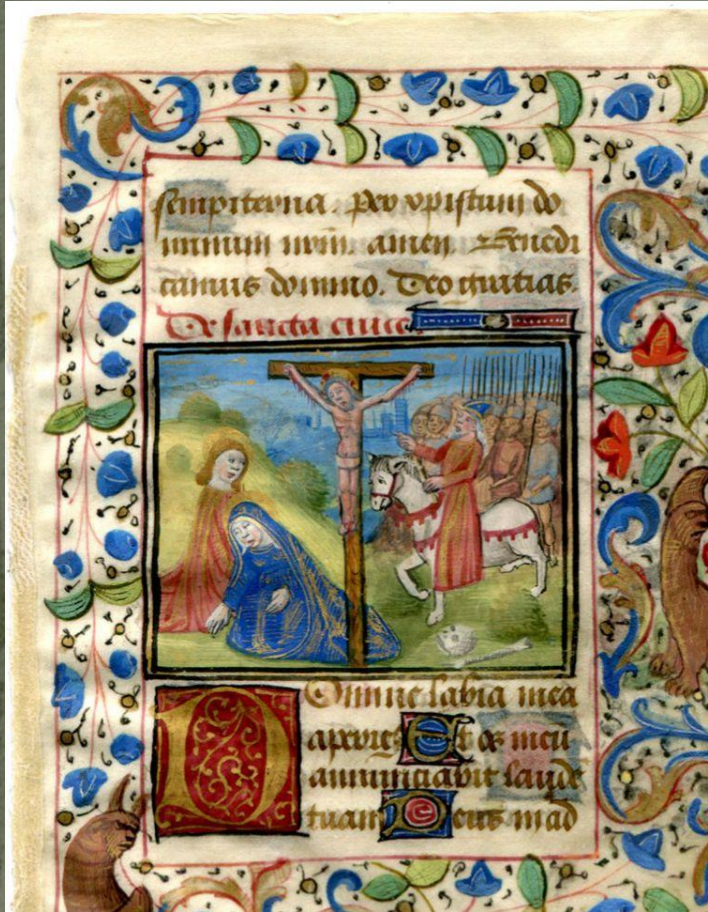 sempiterna. Per xpistum do
minum nrm. amen Benedi
camus domino. Deo gratias.
De sancta cruce
Domine labia mea
aperies Et os meu
annunciabit laude
tuam Deus in ad